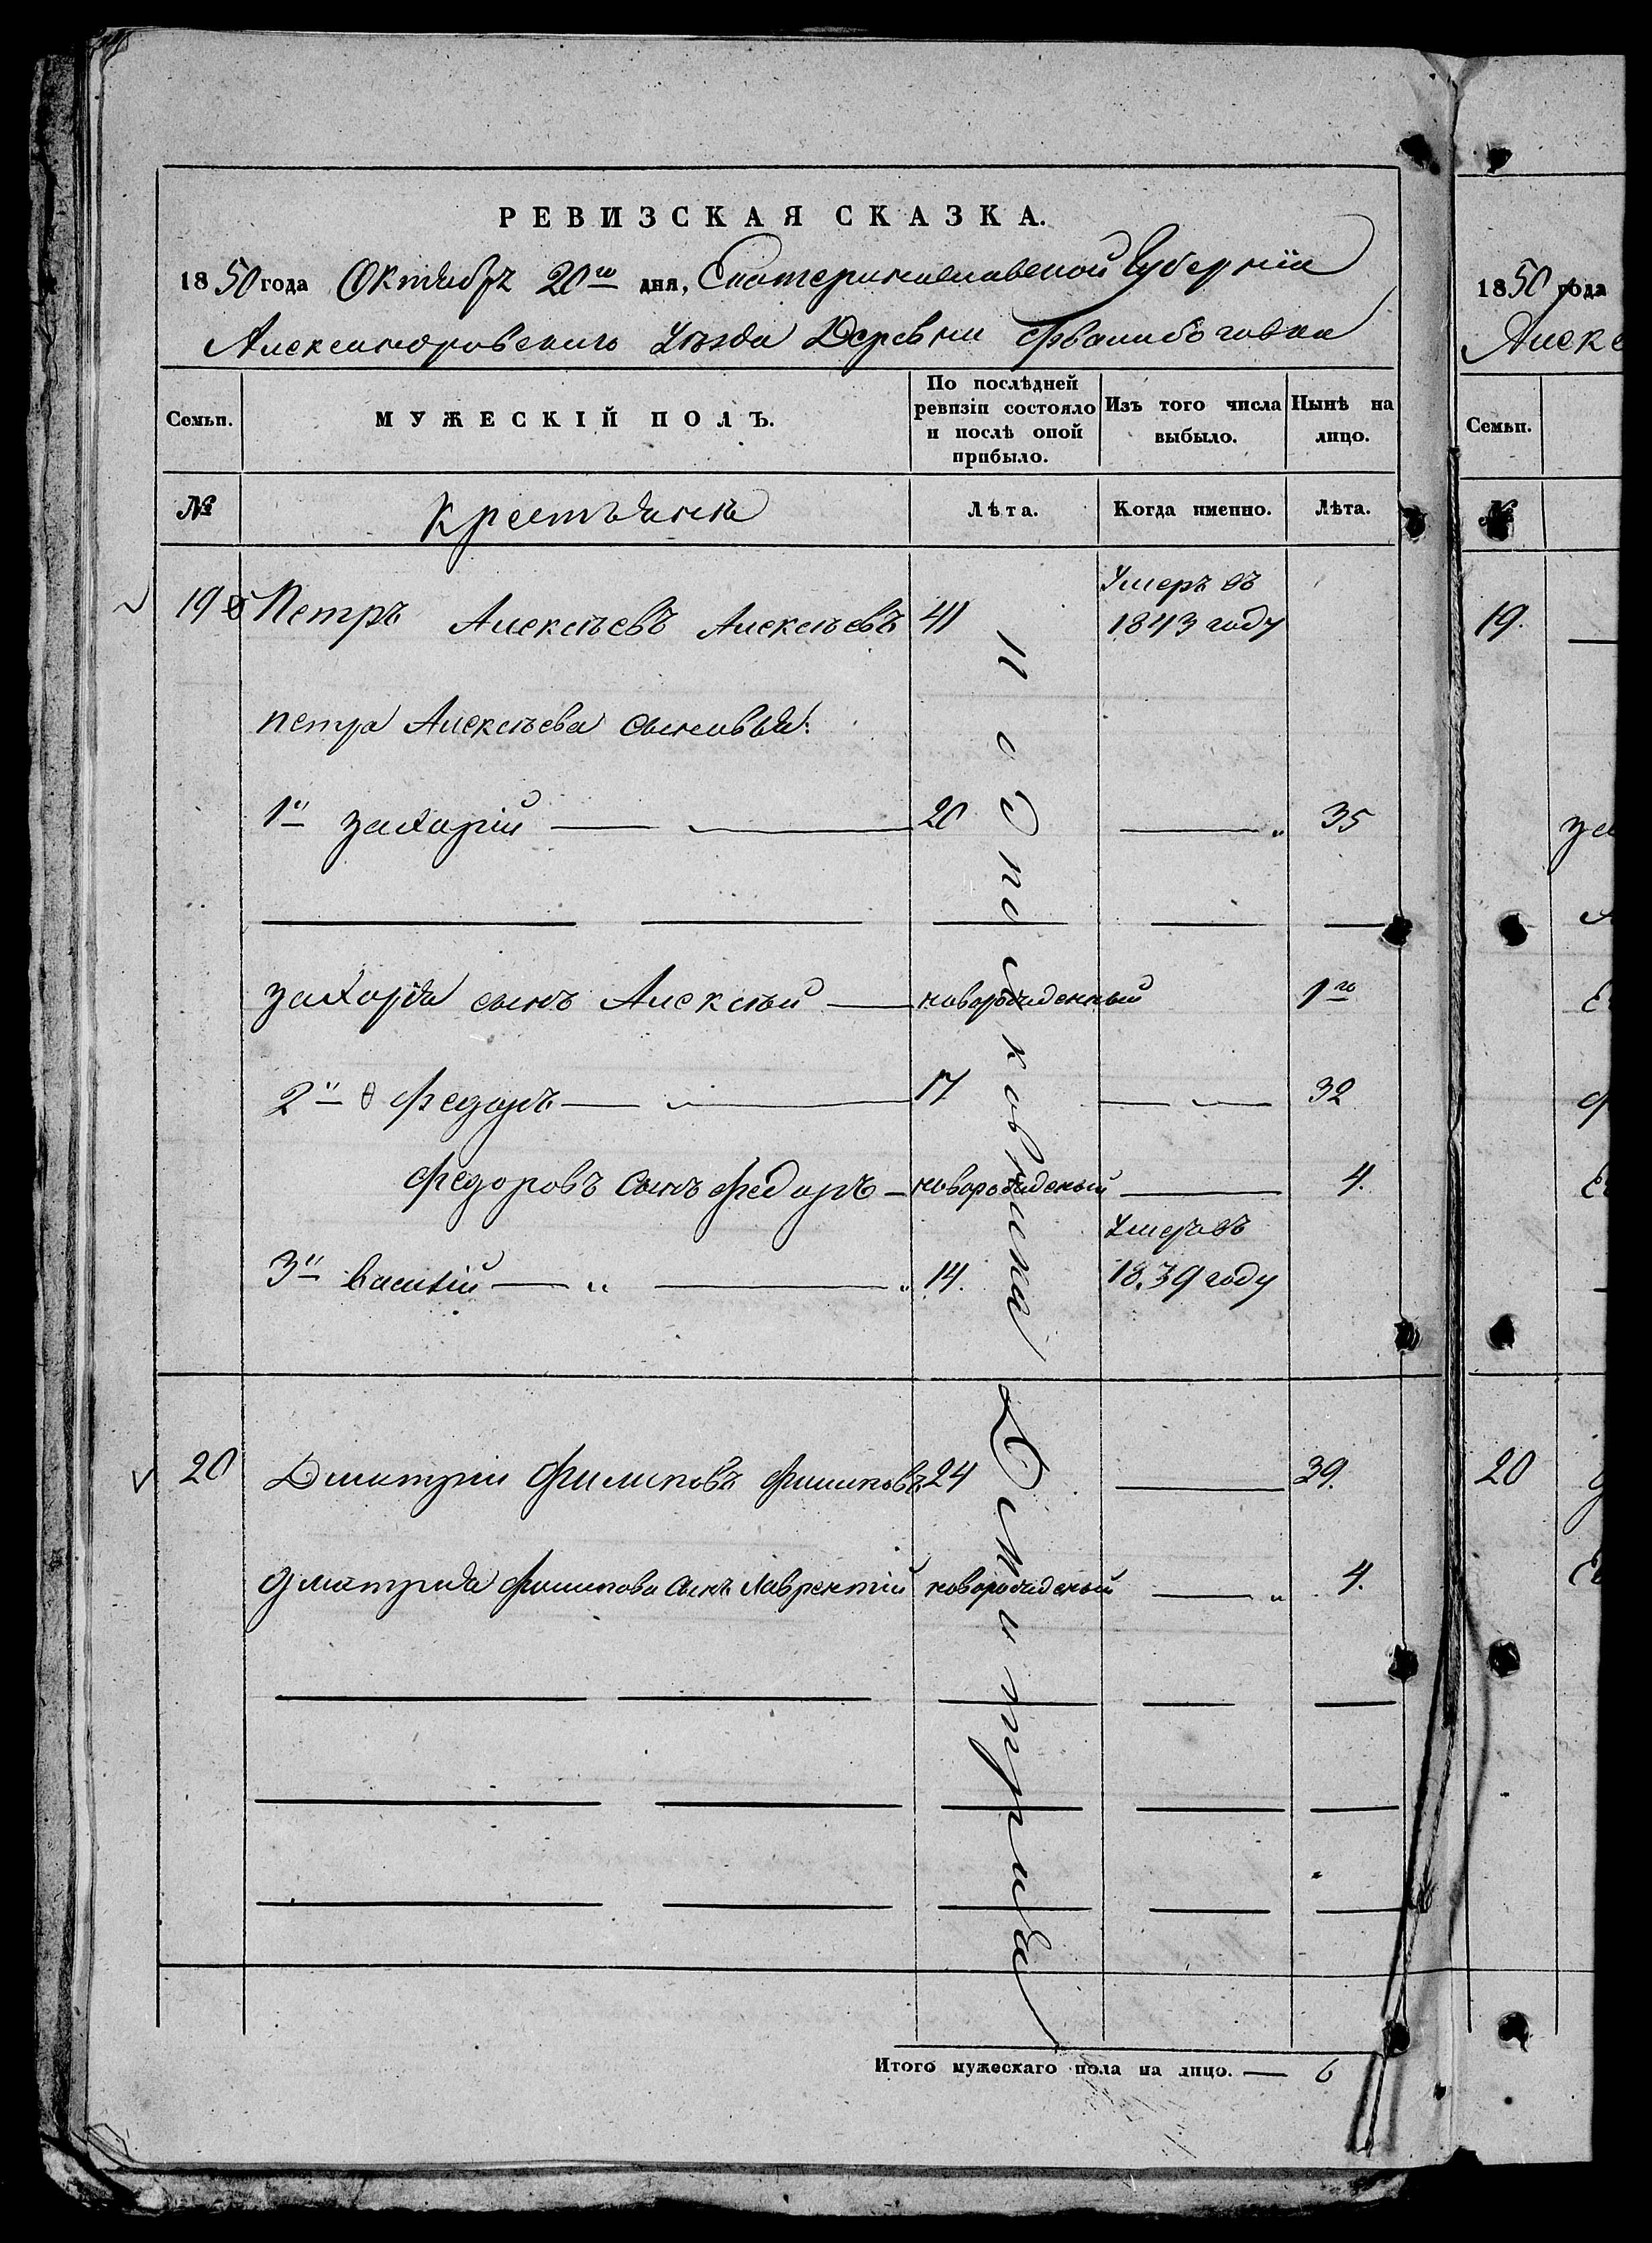 РЕВИЗСКАЯ СКАЗКА.
1850 года Октября 20го дня, Екатеринославской Губерніи
Александровскаго Уѣзда Деревни
Семьи. МУЖЕСКІЙ ПОЛЪ. По послѣдней ревизіи состояло и послѣ оной прибыло. Изъ того числа выбыло. Нынѣ на лицо.
№ Крестьяне Лѣта. Когда именно. Лѣта.
19 Петръ Алексѣевъ Алексѣевъ 41 Умеръ въ 1843 году
петра Алексѣева сыновья:
1й захарій 20 35
захарія сынъ Алексѣй новорожденный 1го
2й Федоръ 17 32
Федоровъ сынъ Федоръ новорожденый 4.
3й василій 14. Умеръ въ 1839 году
20 Дмитрій Филиповъ Филиповъ 24 39.
Дмитрія Филипова сынъ Лаврентій новорожденый 4.
Итого мужескаго пола на лицо. — 6
Дмитрій
1850 года
Алекс
Семьи.
№
19.
за
20